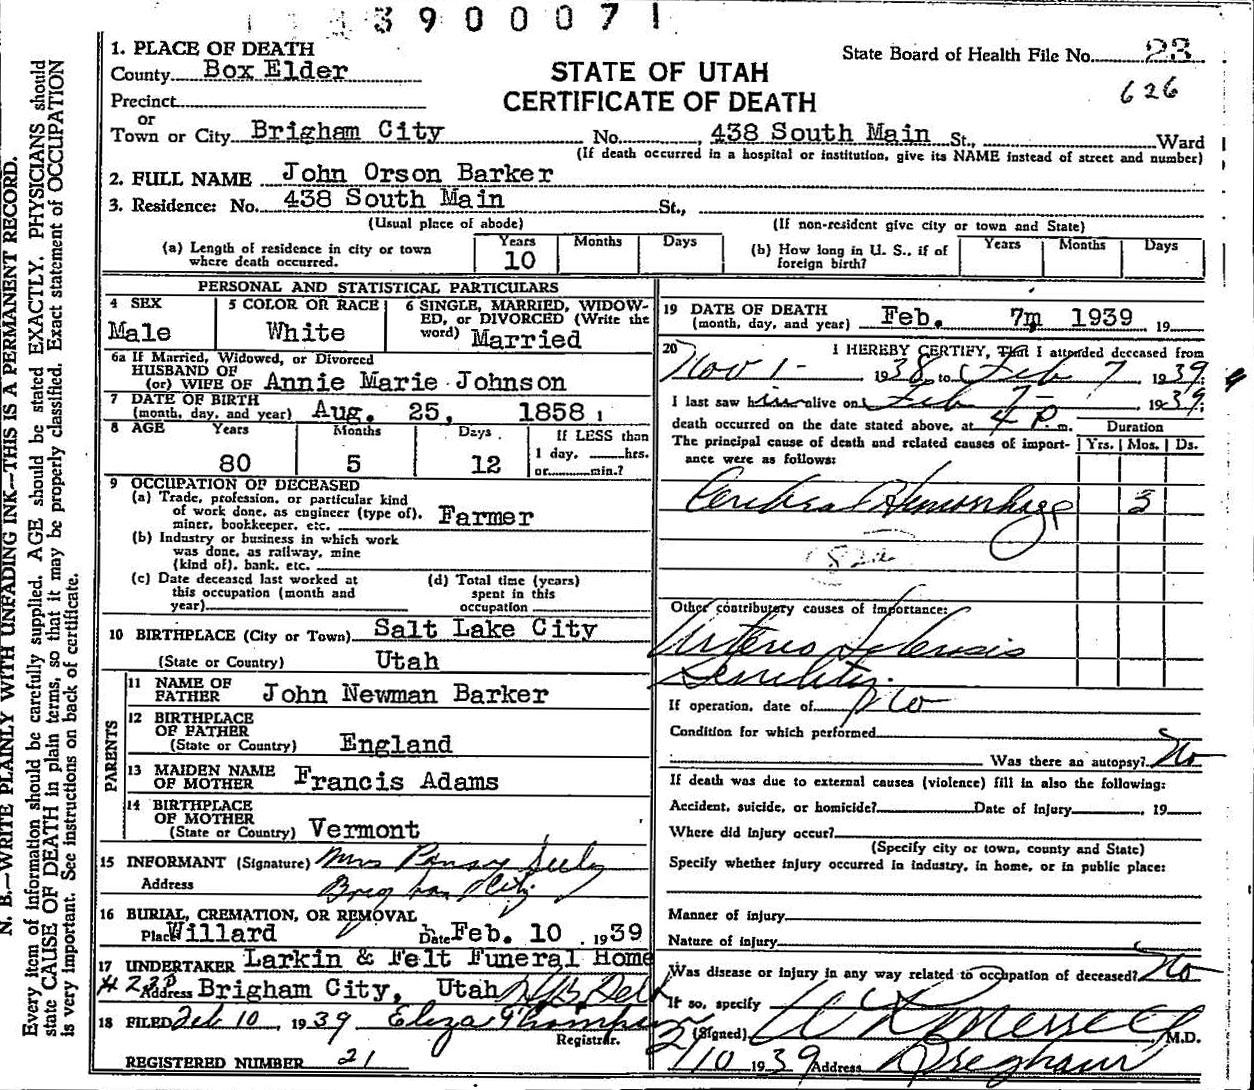 3900071
1. PLACE OF DEATH
State Board of Health File No. 23
County Box Elder
STATE OF UTAH
626
Precinct
CERTIFICATE OF DEATH
or
Town or City Brigham City No. 438 South Main St., Ward
(If death occurred in a hospital or institution, give its NAME instead of street and number)
2. FULL NAME John Orson Barker
3. Residence: No. 438 South Main St.,
(Usual place of abode) (If non-resident give city or town and State)
(a) Length of residence in city or town where death occurred. Years 10 Months Days
(b) How long in U. S., if of foreign birth? Years Months Days
PERSONAL AND STATISTICAL PARTICULARS
4 SEX Male
5 COLOR OR RACE White
6 SINGLE, MARRIED, WIDOWED, OR DIVORCED (Write the word) Married
6a If Married, Widowed, or Divorced
HUSBAND OF
(or) WIFE OF Annie Marie Johnson
7 DATE OF BIRTH
(month, day, and year) Aug. 25, 1858
8 AGE Years 80 Months 5 Days 12 If LESS than 1 day, hrs. or min.?
9 OCCUPATION OF DECEASED
(a) Trade, profession, or particular kind
of work done, as engineer (type of),
miner, bookkeeper, etc. Farmer
(b) Industry or business in which work
was done, as railway, mine
(kind of), bank, etc.
(c) Date deceased last worked at
this occupation (month and
year)
(d) Total time (years)
spent in this
occupation
10 BIRTHPLACE (City or Town) Salt Lake City
(State or Country) Utah
PARENTS
11 NAME OF
FATHER John Newman Barker
12 BIRTHPLACE
OF FATHER
(State or Country) England
13 MAIDEN NAME
OF MOTHER Francis Adams
14 BIRTHPLACE
OF MOTHER
(State or Country) Vermont
15 INFORMANT (Signature) Mrs Pansy Seely
Address Brigham City
16 BURIAL, CREMATION, OR REMOVAL
Place Willard Date Feb. 10, 1939
17 UNDERTAKER Larkin & Felt Funeral Home
Address Brigham City, Utah
18 FILED Feb 10, 1939 Eliza Thompson
Registrar.
REGISTERED NUMBER 21
19 DATE OF DEATH
(month, day, and year) Feb. 7th 1939 19
20 I HEREBY CERTIFY, That I attended deceased from
Nov 1 - 1938, to Feb 7, 1939
I last saw him alive on Feb 7 - 1939
death occurred on the date stated above, at 4 P. m. Duration
The principal cause of death and related causes of importance were as follows: Yrs. Mos. Ds.
Cerebral Hemorrhage 3
82a
Other contributory causes of importance:
Arterio Sclerosis
Senility
If operation, date of No
Condition for which performed
Was there an autopsy? No
If death was due to external causes (violence) fill in also the following:
Accident, suicide, or homicide? Date of injury, 19
Where did injury occur?
(Specify city or town, county and State)
Specify whether injury occurred in industry, in home, or in public place:
Manner of injury
Nature of injury
Was disease or injury in any way related to occupation of deceased? No
If so, specify
(Signed) M.D.
2/10 1939 Address Brigham
N. B.—WRITE PLAINLY WITH UNFADING INK—THIS IS A PERMANENT RECORD.
Every item of information should be carefully supplied. AGE should be stated EXACTLY. PHYSICIANS should
state CAUSE OF DEATH in plain terms, so that it may be properly classified. Exact statement of OCCUPATION
is very important. See instructions on back of certificate.